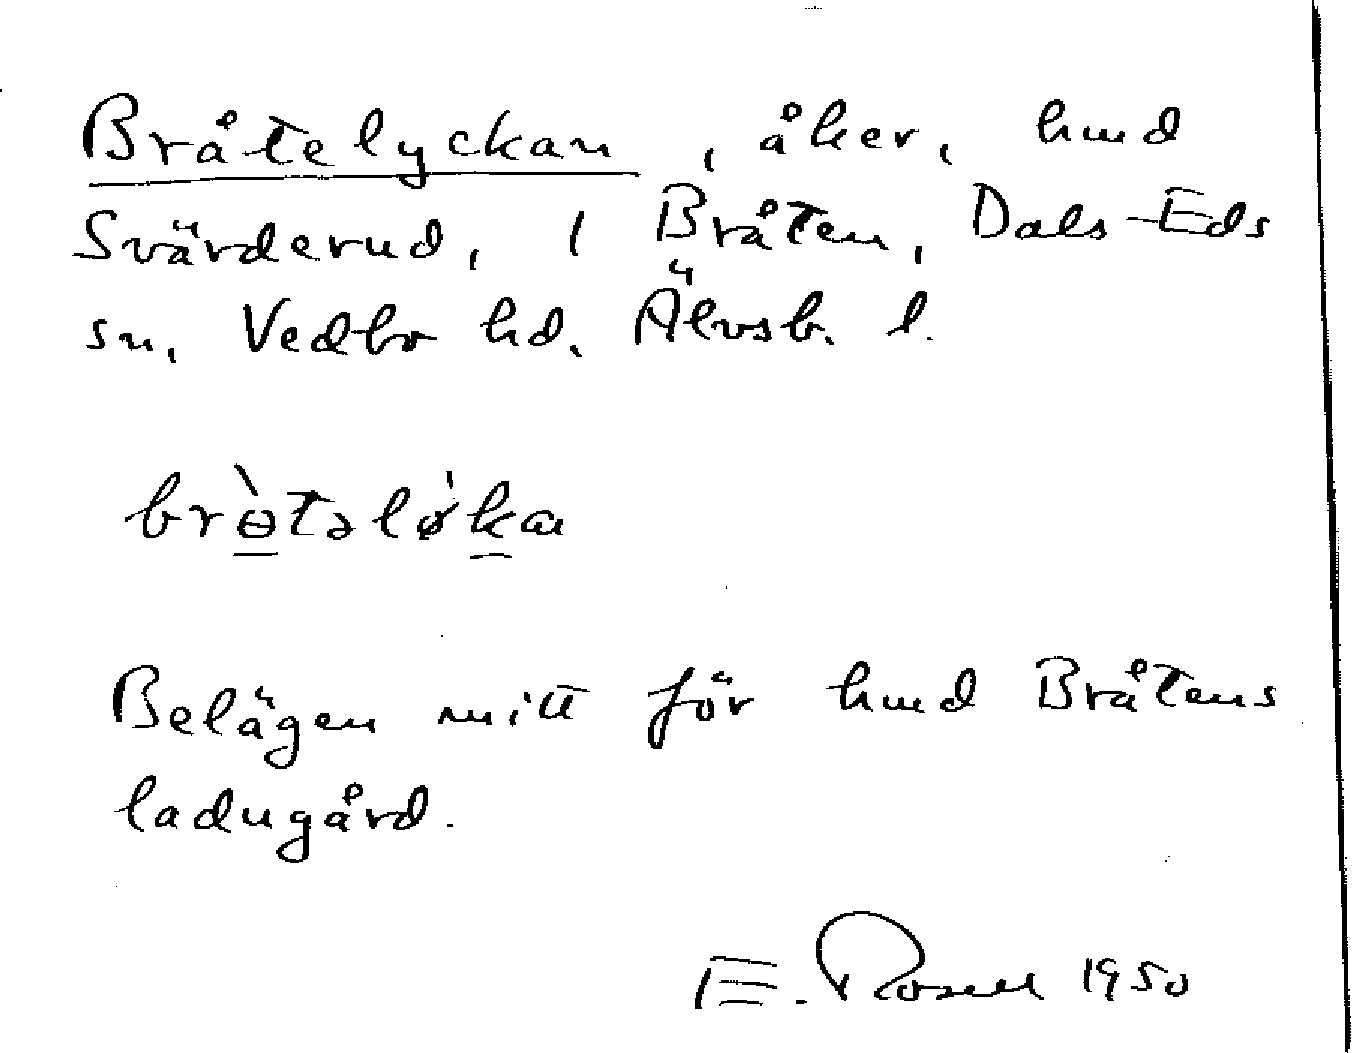 Bråtelyckan, åker, hmd
Svärderud, 1 Bråten, Dals-Eds
sn, Vedbo hd, Älvsb. l.
brɵ̀təlø̀ka
Belägen mitt för hmd Bråtens
ladugård.
E. Rosell 1950